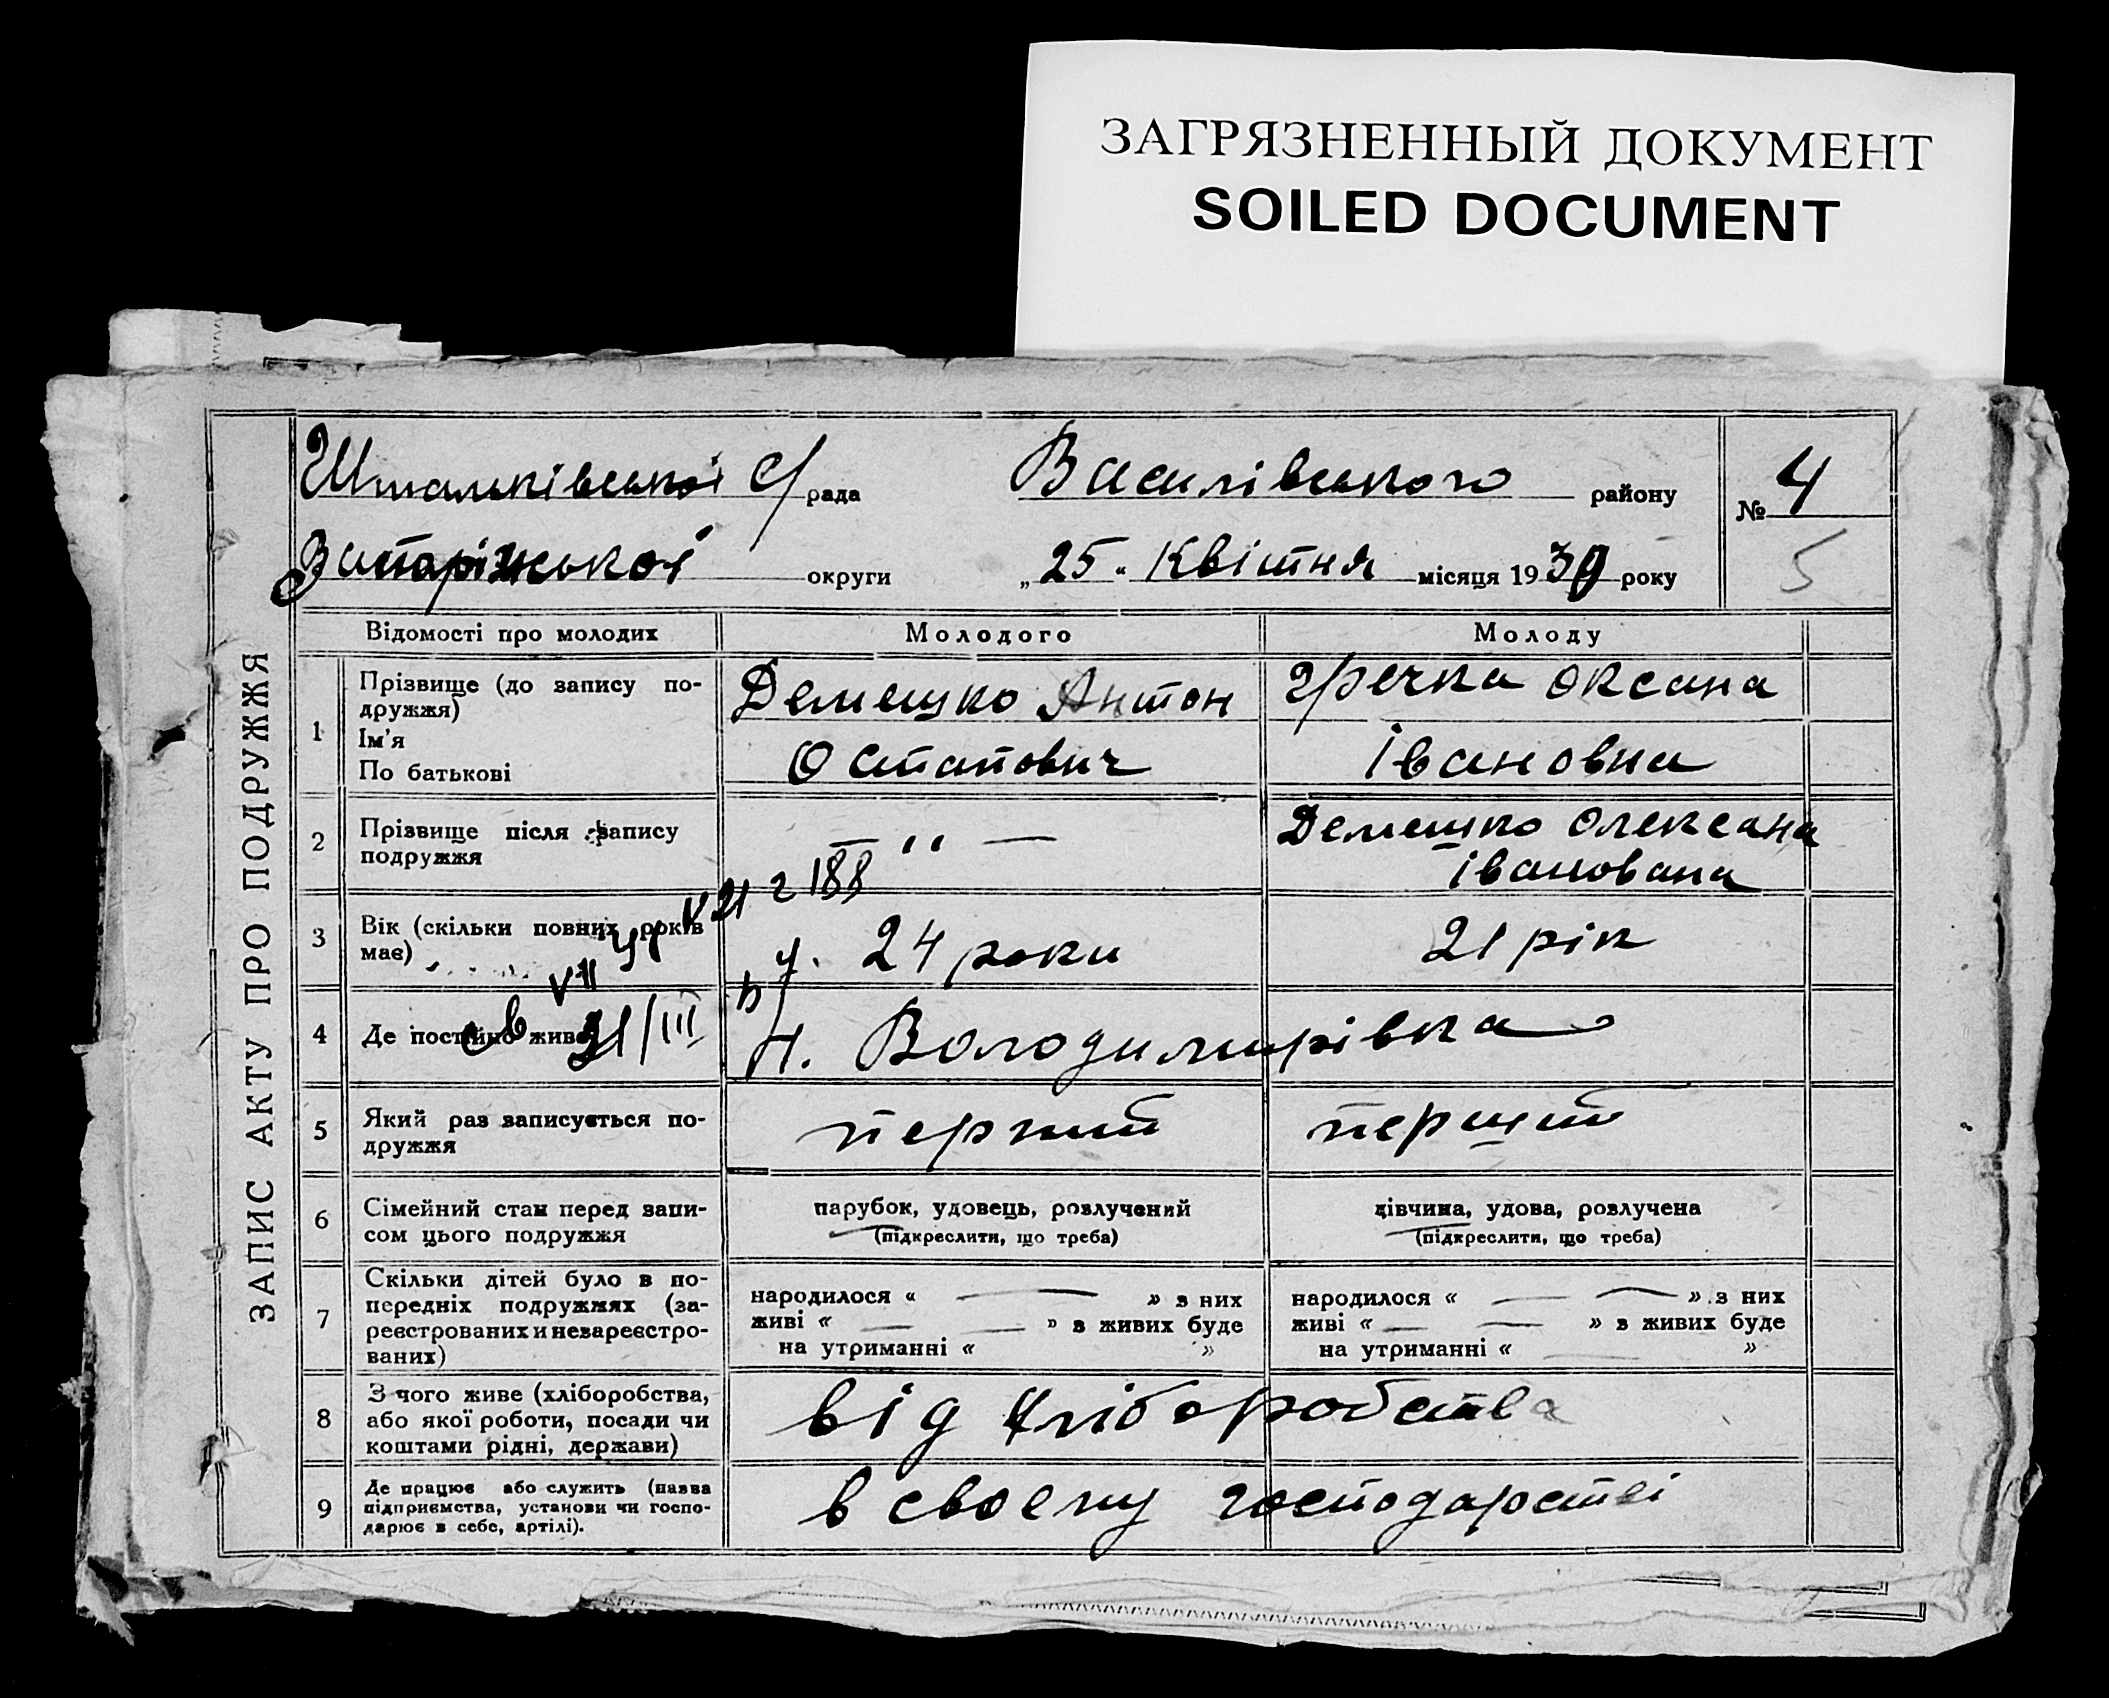 ЗАГРЯЗНЕННЫЙ ДОКУМЕНТ
SOILED DOCUMENT
ЗАПИС АКТУ ПРО ПОДРУЖЖЯ
Штальківської с/рада Василівського району № 4
Запаріжської округи „25" Квітня місяця 1930 року 5
Відомості про молодих Молодого Молоду
1 Прізвище (до запису по-
дружжя)
Ім'я
По батькові
Демешко Антон
Остапович
гречка Оксана
Івановна
2 Прізвище після запису
подружжя
— '' —
Демешко Олексана
Іванована
3 Вік (скільки повних років
має)
V 21 г 188
24 роки
21 рік
4 Де постійно живе
VII
31/III
Н. Володимирівка
5 Який раз записується по-
дружжя
перший
перший
6 Сімейний стан перед запи-
сом цього подружжя
парубок, удовець, розлучений
(підкреслити, що треба)
дівчина, удова, розлучена
(підкреслити, що треба)
7 Скільки дітей було в по-
передніх подружжях (за-
реєстрованих и незареєстро-
ваних)
народилося « — » з них
живі « — — » з живих буде
на утриманні « »
народилося « — — » з них
живі « — — » з живих буде
на утриманні « »
8 З чого живе (хліборобства,
або якої роботи, посади чи
коштами рідні, держави)
від хліборобства
9 Де працює або служить (назва
підприємства, установи чи госпо-
дарює в себе, артілі).
в своєму господарстві